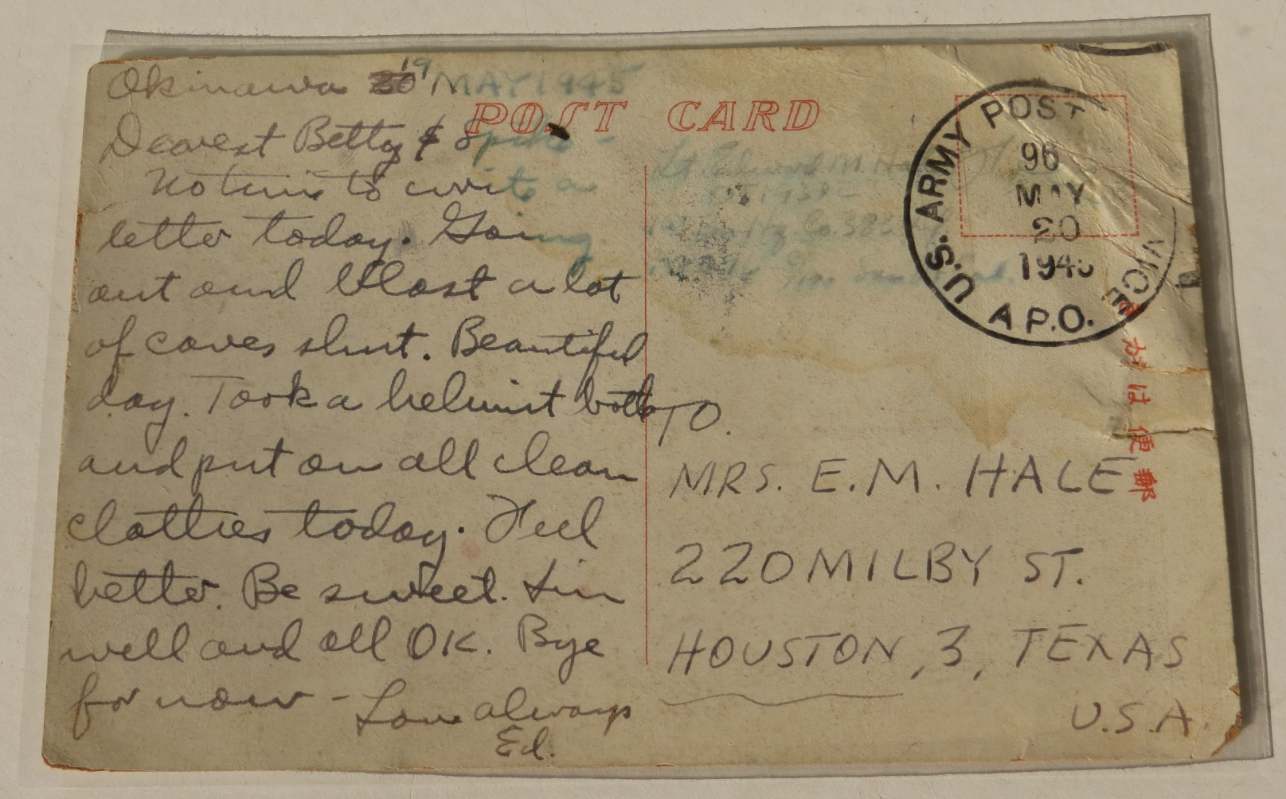 Okinawa 19 MAY 1945
Dearest Betty &
No time to write a
letter today. Going
out and blast a lot
of caves shut. Beautiful
day. Took a helmit bath
and put on all clean
clothes today. Feel
better. Be sweet. I'm
well and all OK. Bye
for now - Love always
Ed.
POST CARD
Lt. Edward M. Hale
Co. 382
U.S. ARMY POST
96
MAY
20
1945
A.P.O.
郵便はがき
TO.
MRS. E.M. HALE
220 MILBY ST.
HOUSTON, 3, TEXAS
U.S.A.